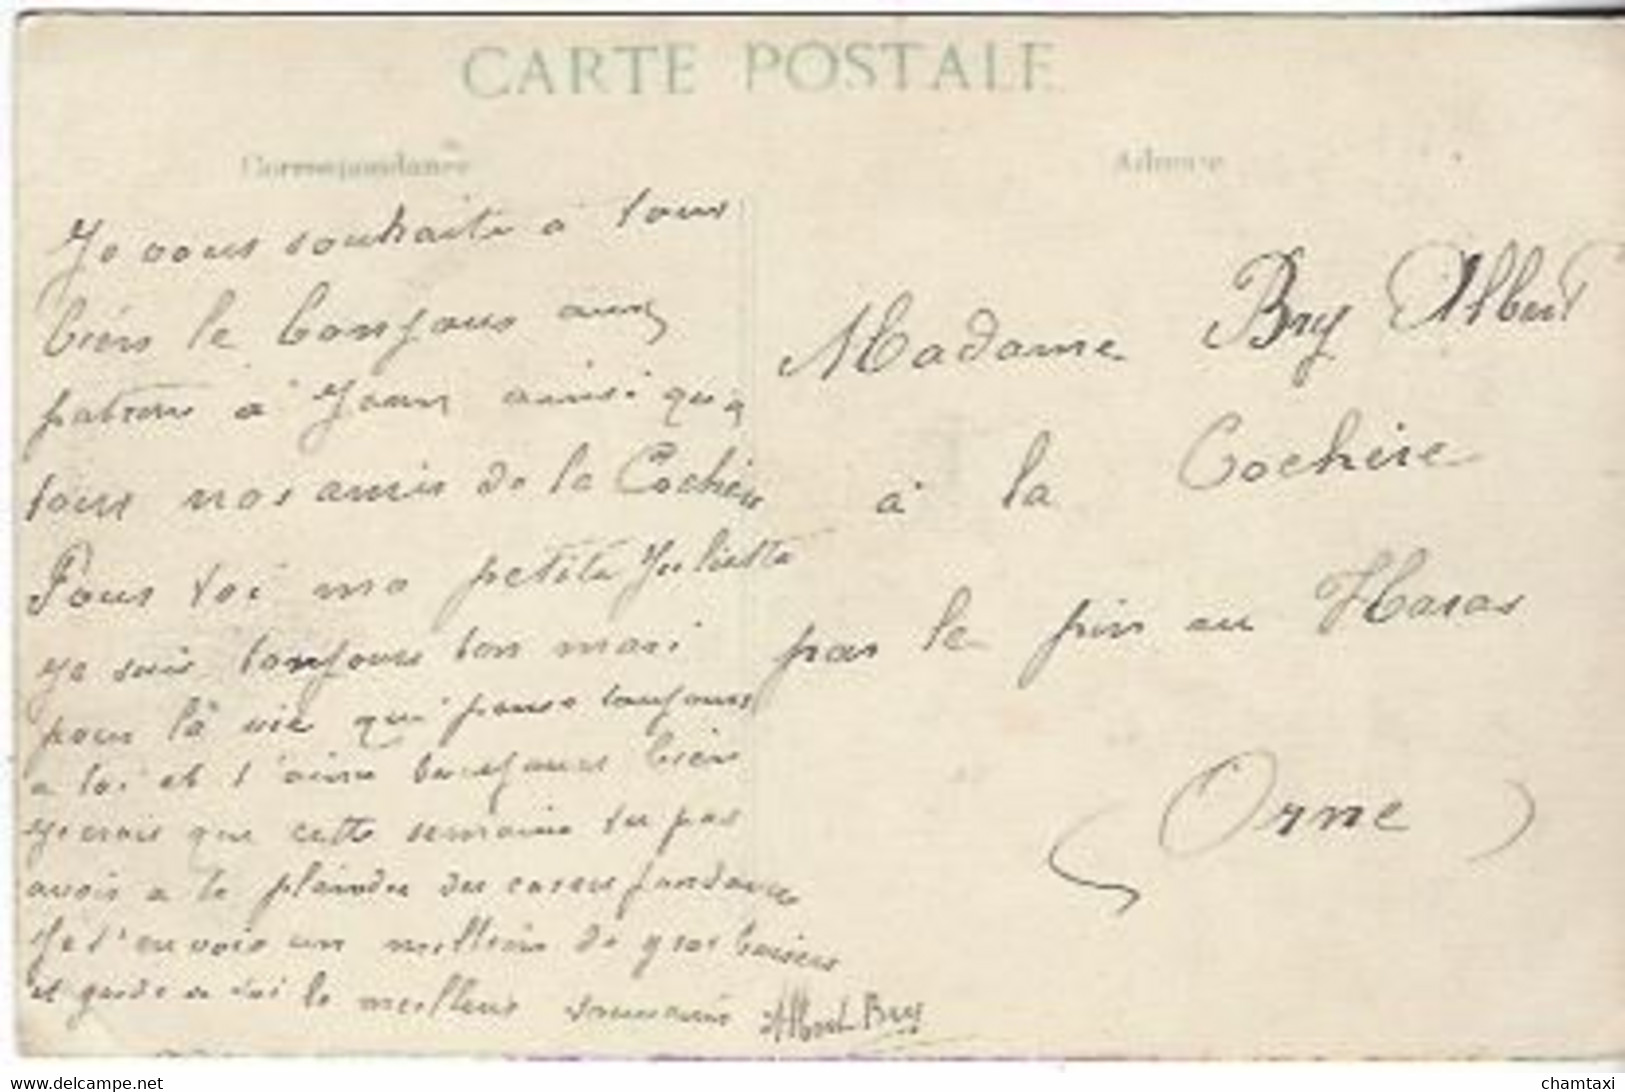 CARTE POSTALE
Correspondance
Adresse
Je vous souhaite a tous
bien le bonjour aux
patrons a Jean ainsi qu'a
tous nos amis de la Cochère
Pour toi ma petite Juliette
je suis toujours ton mari
pour la vie qui pense toujours
a toi et t'aime toujours bien
Je crois que cette semaine tu pas
avoir a te plaindre du
Je t'envois un million de gros baisers
et garde a toi le meilleur Albert Bry
Madame Bry Albert
à la Cochère
par le pin au Haras
(Orne)
www.delcampe.net
chamtaxi